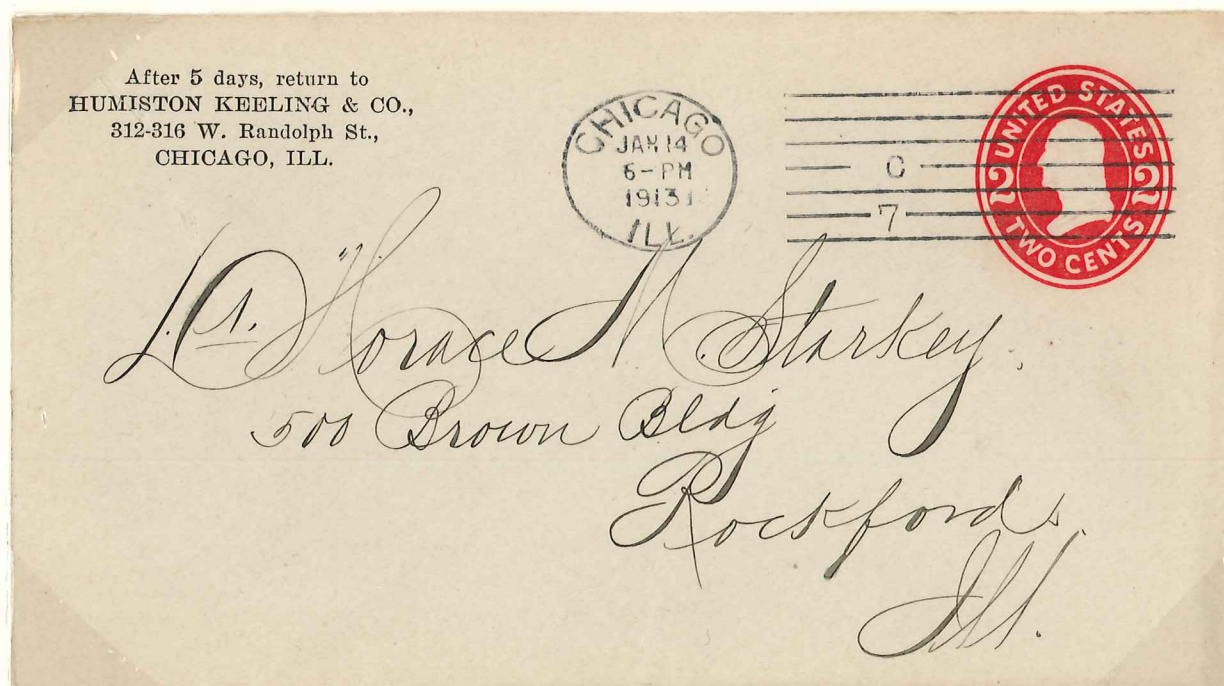 After 5 days, return to
HUMISTON KEELING & CO.,
312-316 W. Randolph St.,
CHICAGO, ILL.
CHICAGO
JAN 14
6-PM
1913
ILL.
C
7
UNITED STATES
2 2
TWO CENTS
Horace M. Starkey.
500 Brown Bldg
Rockford
Ill.